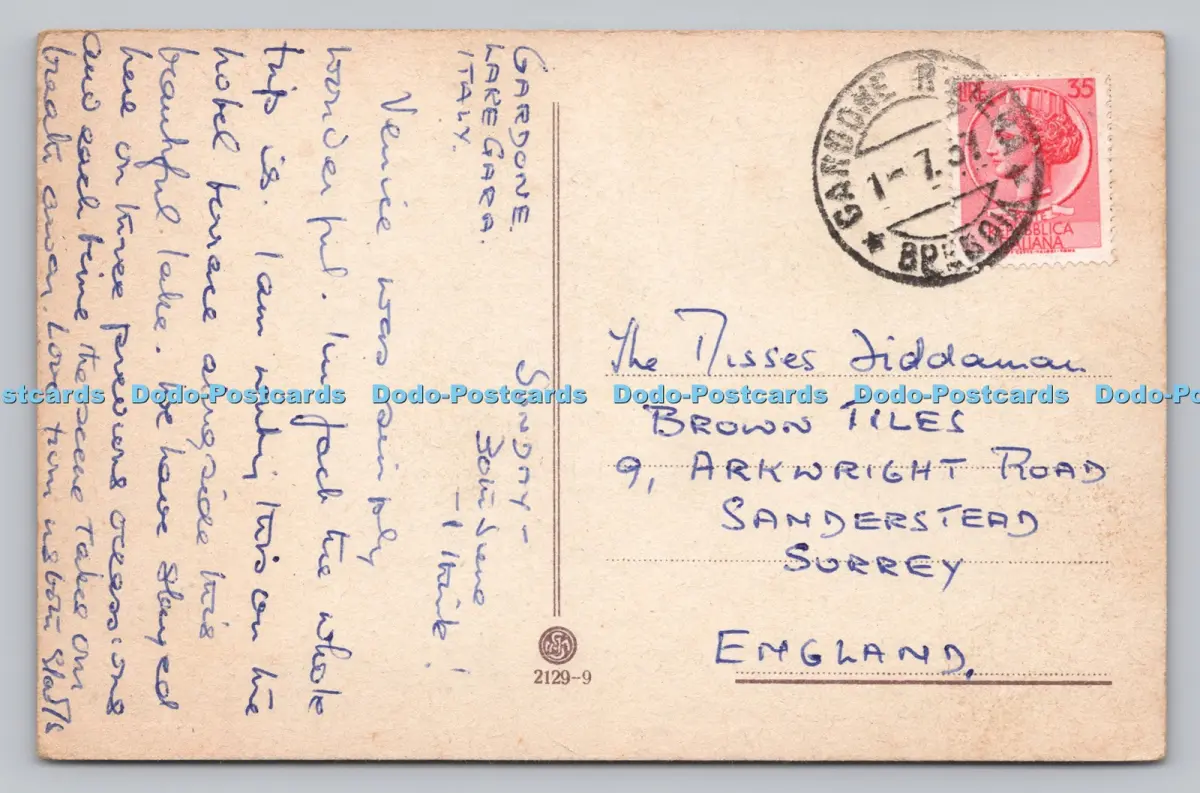 GARDONE.
LAKE GARA.
ITALY.
SUNDAY -
30th June
- I think!
Venice was simply
wonderful. In fact the whole
trip is. I am writing this on the
hotel terrace alongside this
beautiful lake. We have stayed
here on three previous occasions
and each time the scene takes our
breath away. Love from us both
LIRE 35
REPUBBLICA
ITALIANA
GARDONE RIVIERA
1-7.57
BRESCIA
The Misses Fiddaman
BROWN TILES
9, ARKWRIGHT ROAD
SANDERSTEAD
SURREY
ENGLAND.
2129-9
Dodo-Postcards Dodo-Postcards Dodo-Postcards Dodo-Postcards Dodo-Postcards